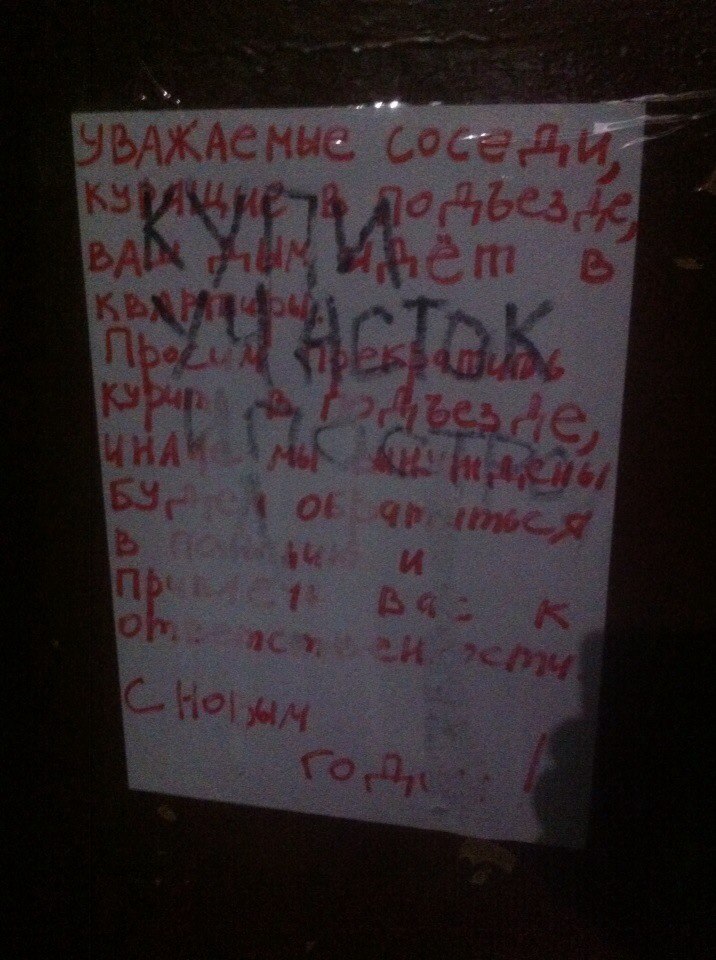 УВАЖАЕМЫЕ СОСЕДИ,
КУРЯЩИЕ В ПОДЪЕЗДЕ,
ВАШ ДЫМ ИДЁТ В
КВАРТИРЫ.
Просим прекратить
курить в подъезде,
иначе мы вынуждены
будем обратиться
в полицию и
привлечь вас к
ответственности.
С НОВЫМ
ГОДОМ!
КУПИ
УЧАСТОК
И ПОСТРО